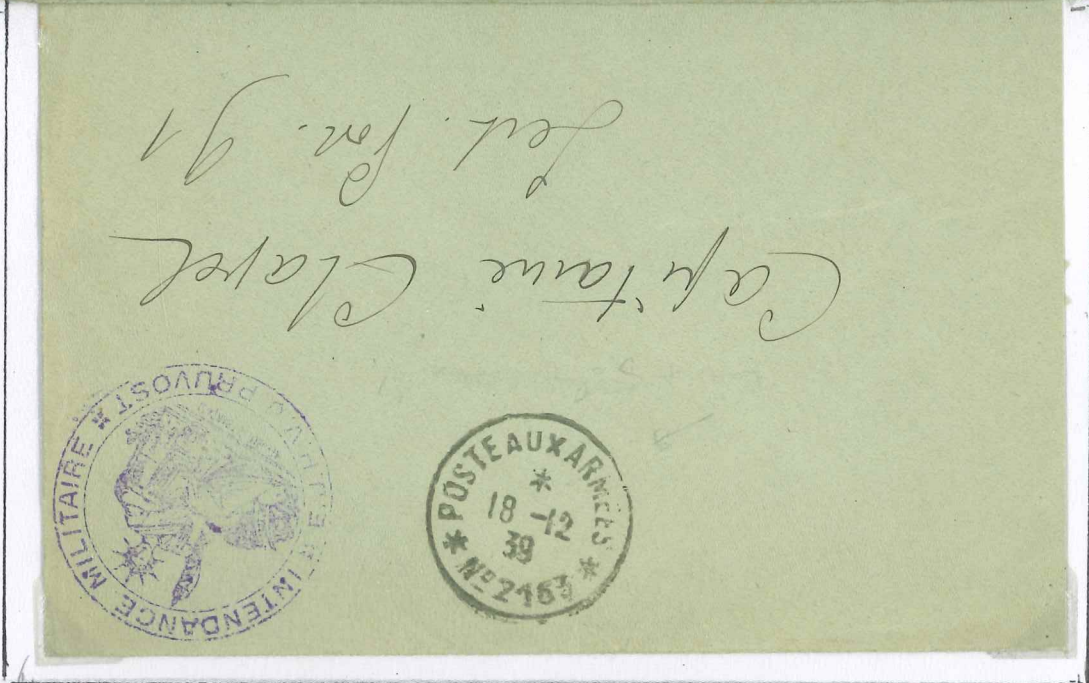 Capitaine Clavel
Sect. Pos. 91
POSTE AUX ARMEES
18-12
39
No 2163
INTENDANCE MILITAIRE
PRUVOST